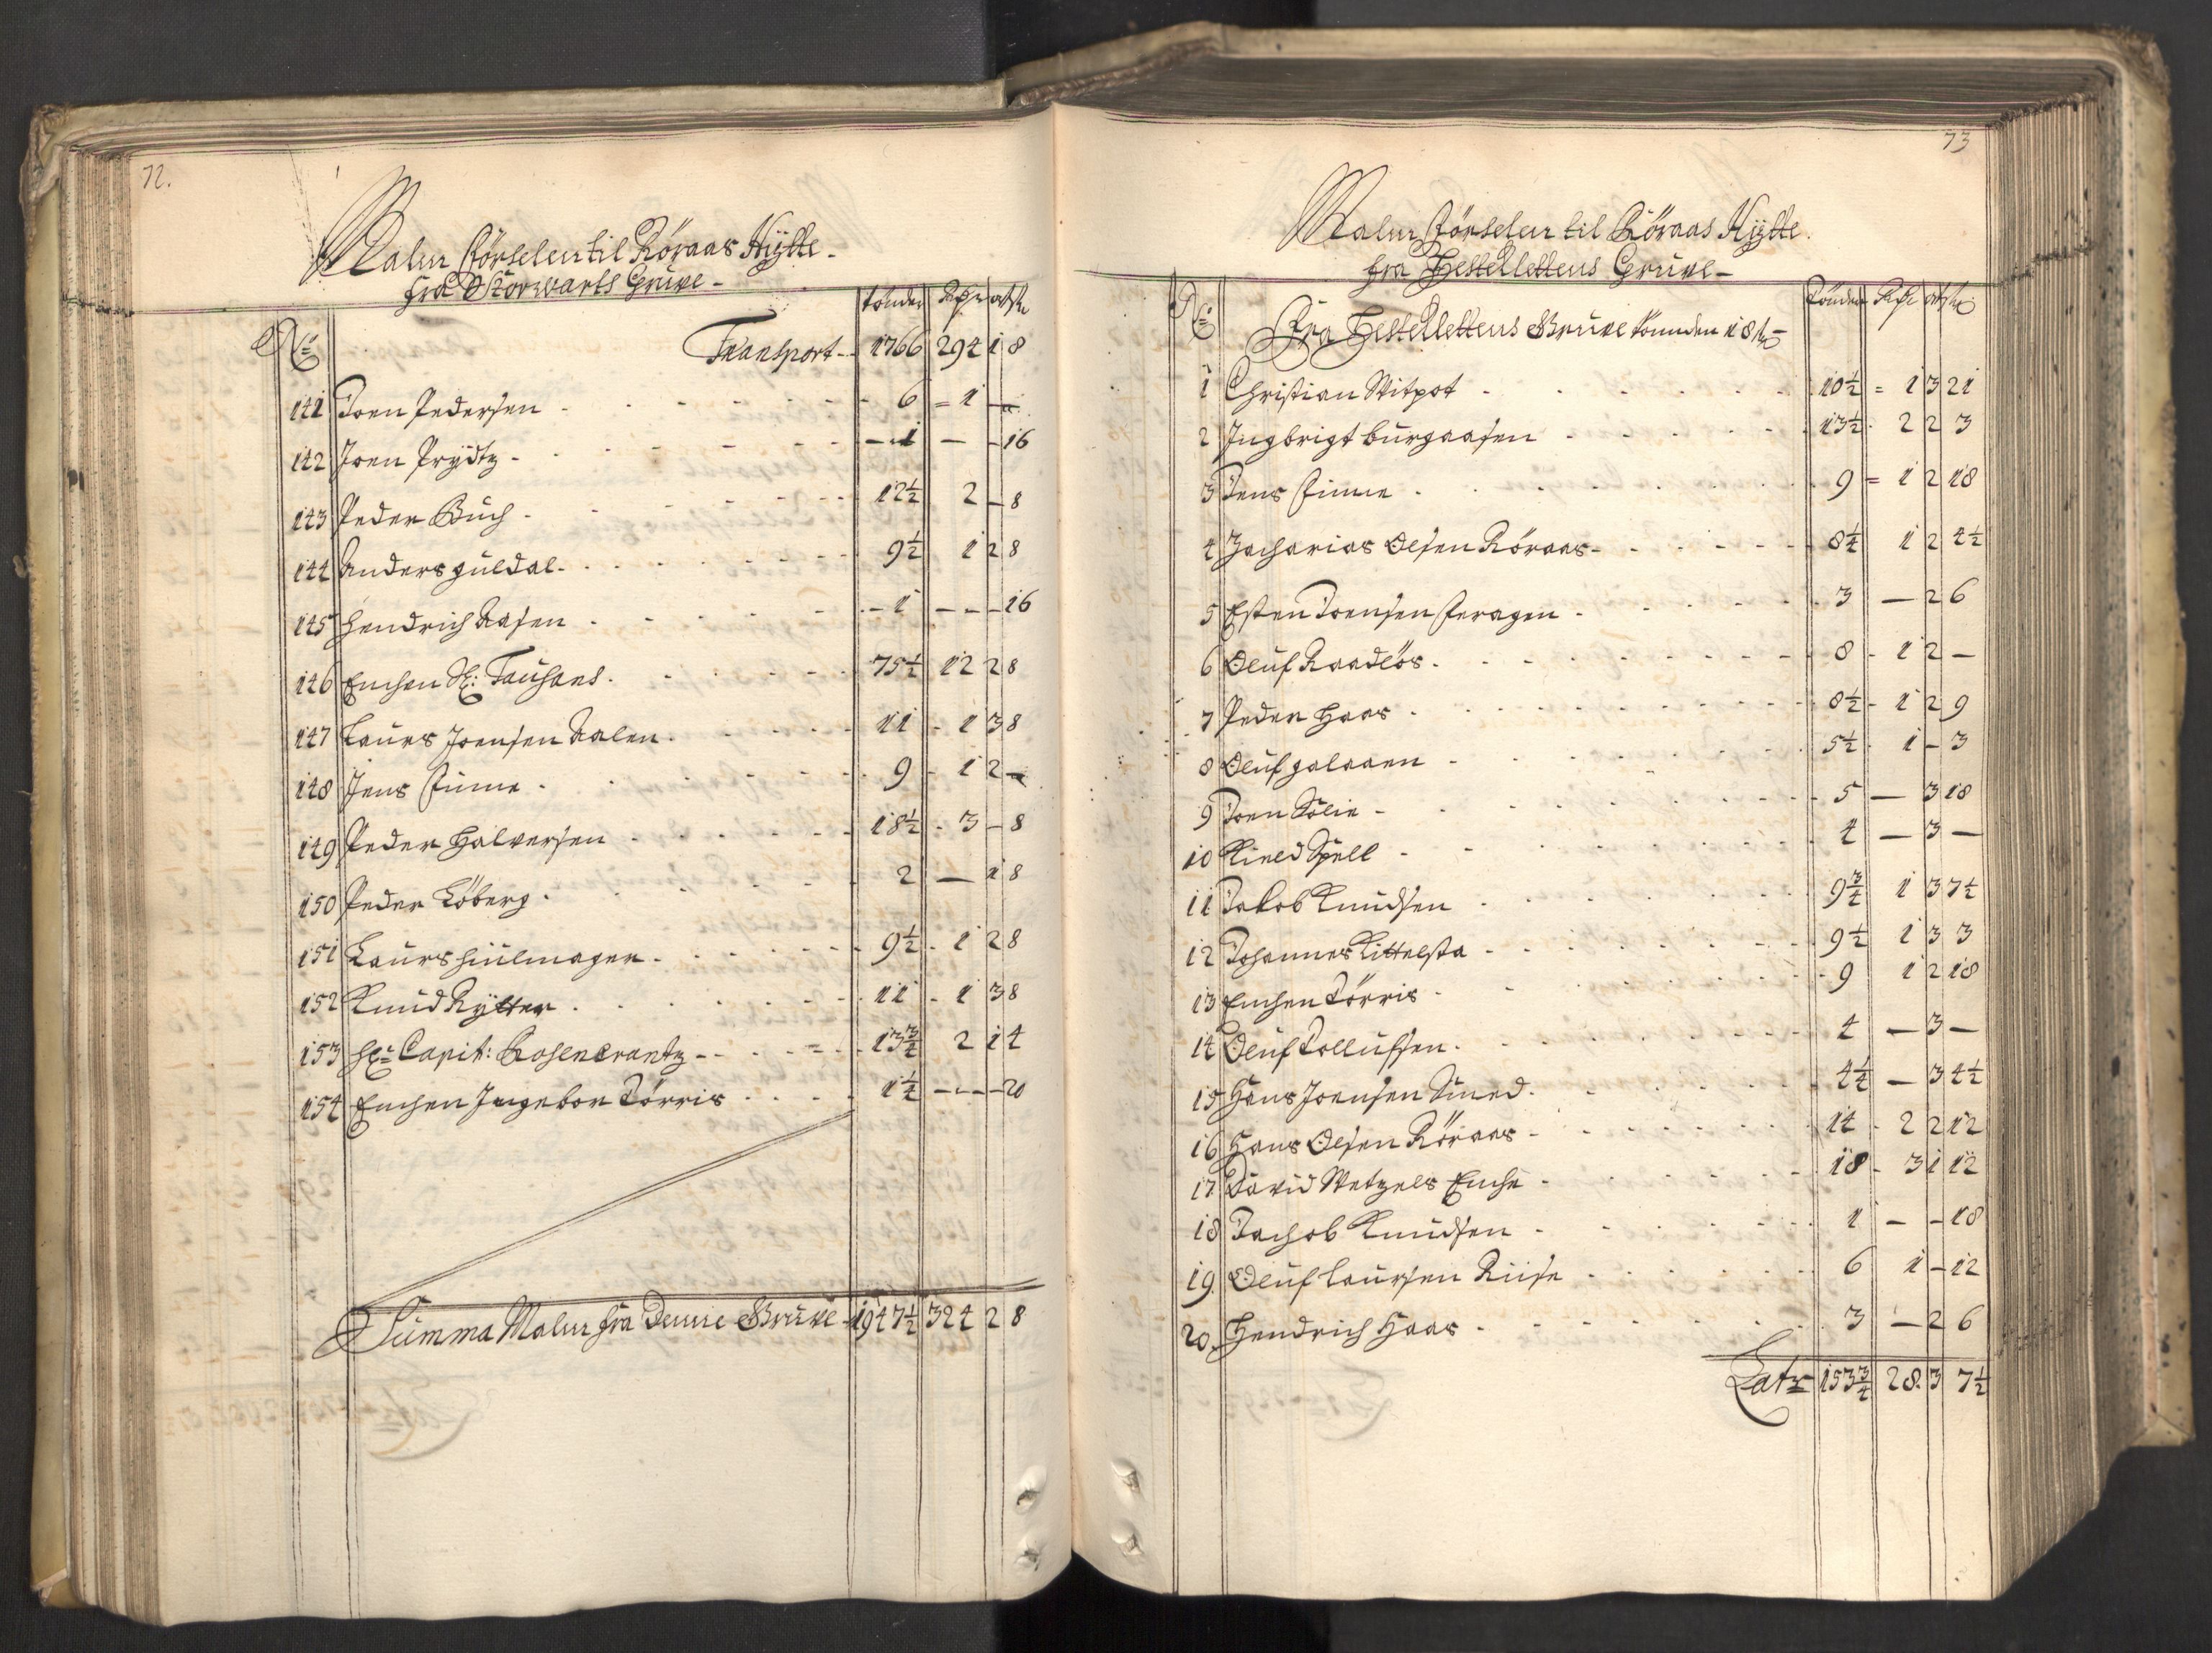 72.
Malm Förselen til Röraas Hÿtte
fra Storwarts Gruve
No Tönder Rdr ort ß
Transport 1766 294 1 8
141 Joen Pedersen 6 1 —
142 Joen Prÿdtz 1 — — 16
143 Peder Buch 12½ 2 — 8
144 Anders guldal 9½ 1 2 8
145 Hendrich Aasen 1 — — 16
146 Enchen Sl: Tausans 75½ 12 2 8
147 Laurs Joensen Aalen 11 1 3 8
148 Jens Finne 9 1 2 —
149 Peder Halversen 18½ 3 — 8
150 Peder Löberg 2 — 1 8
151 Laurs hiulmager 9½ 1 2 8
152 Knud Rÿtter 11 1 3 8
153 Hr Capit: Rosencrantz 13¾ 2 1 4
154 Enchen Ingebor Törris 1¼ — — 20
Summa Malm fra Denne Gruve 1947½ 324 2 8
73
Malm Förselen til Röraas Hÿtte
fra Hestekletten Gruve
No Tönder Rdr ort ß
Fra Hesteklettens Gruve Tönnden 18 ß
1 Christian Witpot 10½ 1 3 21
2 Ingbrigt burgaasen 13½ 2 2 3
3 Jens Finne 9 1 2 18
4 Zacharias Olsen Röraas 8¼ 1 2 4½
5 Esten Joensen Feragen 3 — 2 6
6 Oluf Raadlös 8 1 2 —
7 Peder Haas 8½ 1 2 9
8 Oluf galaaen 5½ 1 — 3
9 Joen Sölie 5 — 3 18
10 Kield Spell 4 — 3 —
11 Jakob Knudsen 9¾ 1 3 7½
12 Johannes Kittelsta 9½ 1 3 3
13 Enchen Törris 9 1 2 18
14 Oluf Tollufsen 4 — 3 —
15 Hans Joensen Smed 4¼ — 3 4½
16 Hans Olsen Röraas 14 2 2 12
17 David Wetzels Enche 18 3 1 12
18 Jachob Knudsen 1 — — 18
19 Oluf laursen Riise 6 1 — 12
20 Hendrich Haas 3 — 2 6
Latr 153¾ 28 3 7½